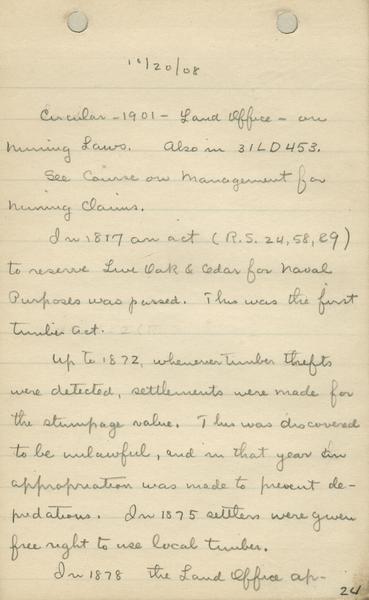 11/20/08
Circular - 1901 - Land Office - on
Mining Laws. Also in 31 LD 453.
See Course on Management for
Mining Claims.
In 1817 an act (R.S. 24,58,89)
to reserve Live Oak & Cedar for Naval
Purposes was passed. This was the first
timber act.
Up to 1872, whenever timber thefts
were detected, settlements were made for
the stumpage value. This was discovered
to be unlawful, and in that year an
appropriation was made to prevent de-
predations. In 1875 settlers were given
free right to use local timber.
In 1878 the Land Office ap-
24